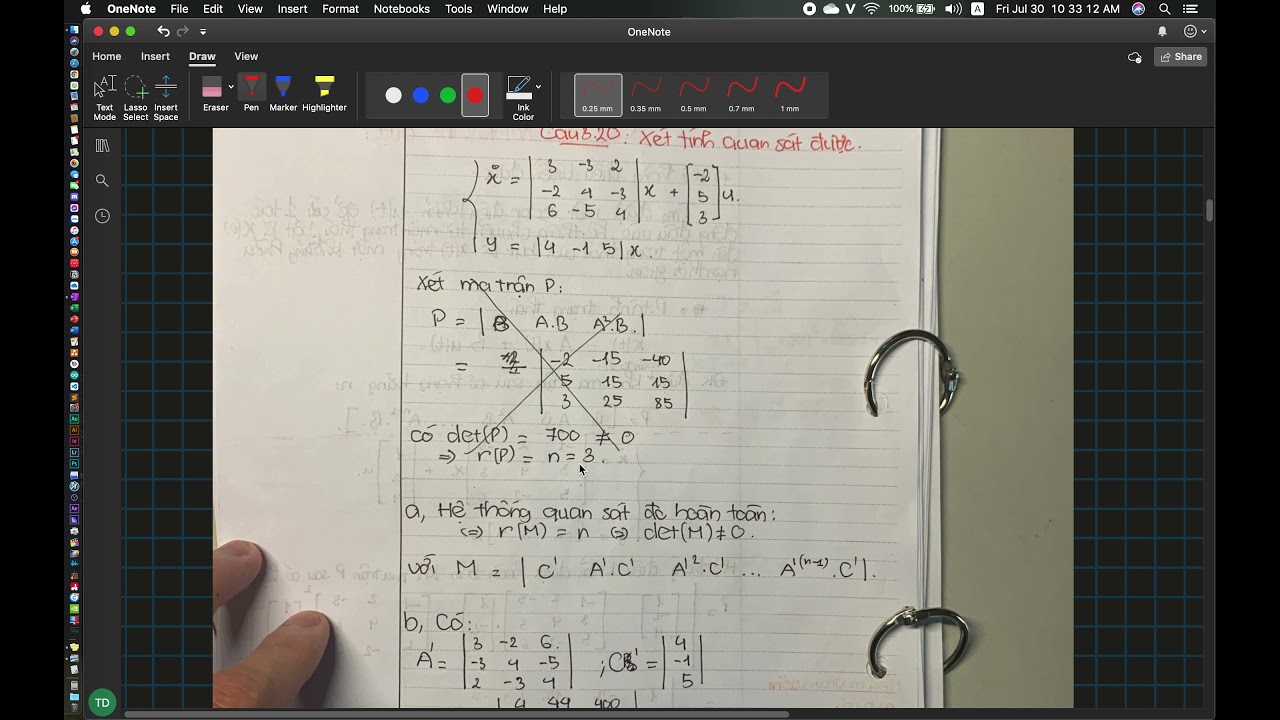 OneNote File Edit View Insert Format Notebooks Tools Window Help 100% A Fri Jul 30 10 33 12 AM
OneNote
Home Insert Draw View Share
Text Mode
Lasso Select
Insert Space
Eraser
Pen
Marker
Highlighter
Ink Color
0.25 mm
0.35 mm
0.5 mm
0.7 mm
1 mm
Câu 3.20: Xét tính quan sát được.
ẋ = | 3 -3 2 |
| -2 4 -3 | x + [-2 5 3] u.
| 6 -5 4 |
y = |4 -1 5| x.
Xét ma trận P:
P = | B A.B A².B. |
= | -2 -15 -40 |
| 5 15 15 |
| 3 25 85 |
có det(P) = 700 ≠ 0
=> r(P) = n = 3.
a, Hệ thống quan sát đc hoàn toàn:
<=> r(M) = n <=> det(M) ≠ 0.
với M = | C' A'.C' A'².C' ... A'⁽ⁿ⁻¹⁾.C' |.
b, Có:
A' = | 3 -2 6. | ; C' = | 4 |
| -3 4 -5 | | -1 |
| 2 -3 4 | | 5 |
| 4 44 400
TD